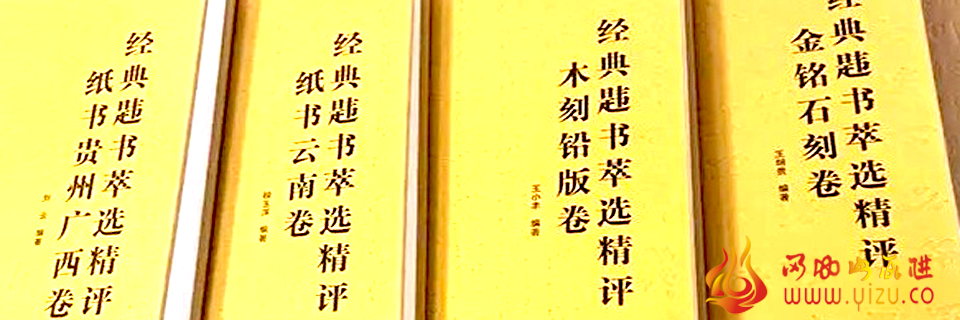 经典书萃选精评
纸书贵州广西卷
编著
经典书萃选精评
纸书云南卷
编著
经典书萃选精评
木刻铅版卷
王小丰 编著
经典书萃选精评
金铭石刻卷
王明贵 编著
www.yizu.co